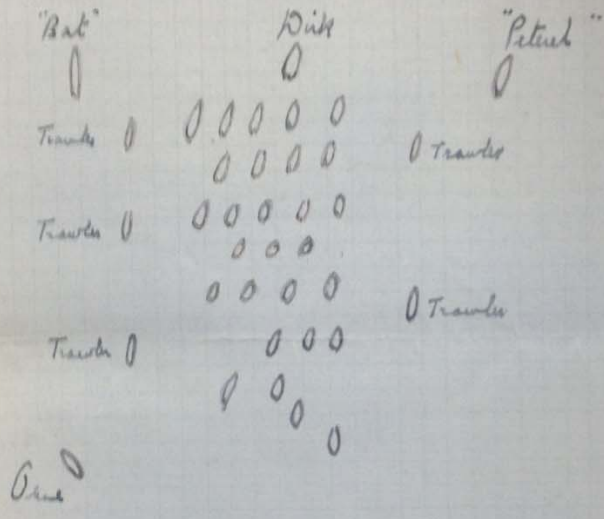 "Bat" Dirk "Peterel"
Trawler
Trawler
Trawler
Trawler
Trawler